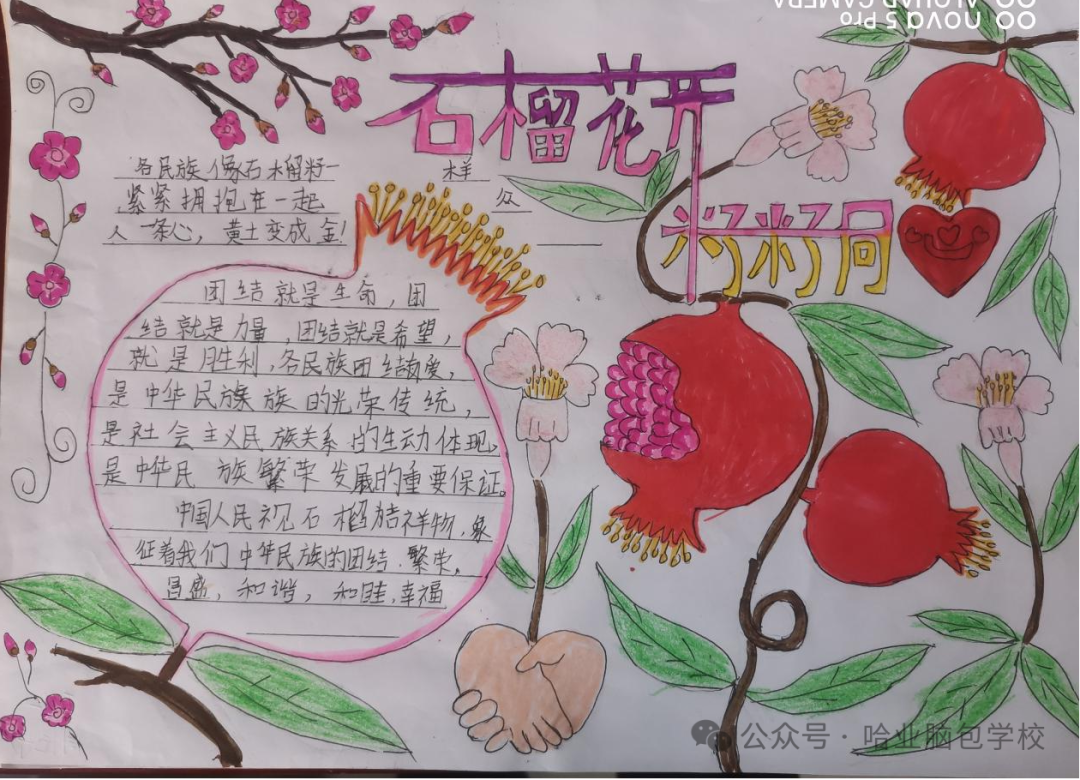 石榴花开
籽籽同
各民族像石榴籽一样
紧紧拥抱在一起 众
人一条心，黄土变成金！
团结就是生命，团
结就是力量，团结就是希望，
就是胜利，各民族团结友爱，
是中华民族族的光荣传统，
是社会主义民族关系的生动体现。
是中华民族繁荣发展的重要保证。
中国人民视石榴结祥物，象
征着我们中华民族的团结、繁荣。
昌盛，和谐，和睦、幸福
ALQUAD CAMERA
nova 5 Pro
公众号·哈业脑包学校